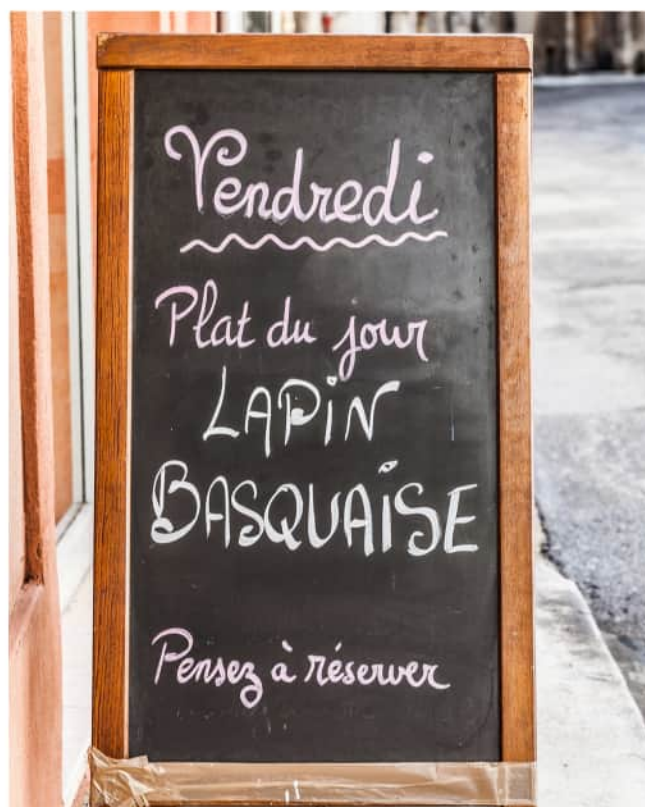 Vendredi
Plat du jour
LAPIN
BASQUAISE
Pensez à réserver